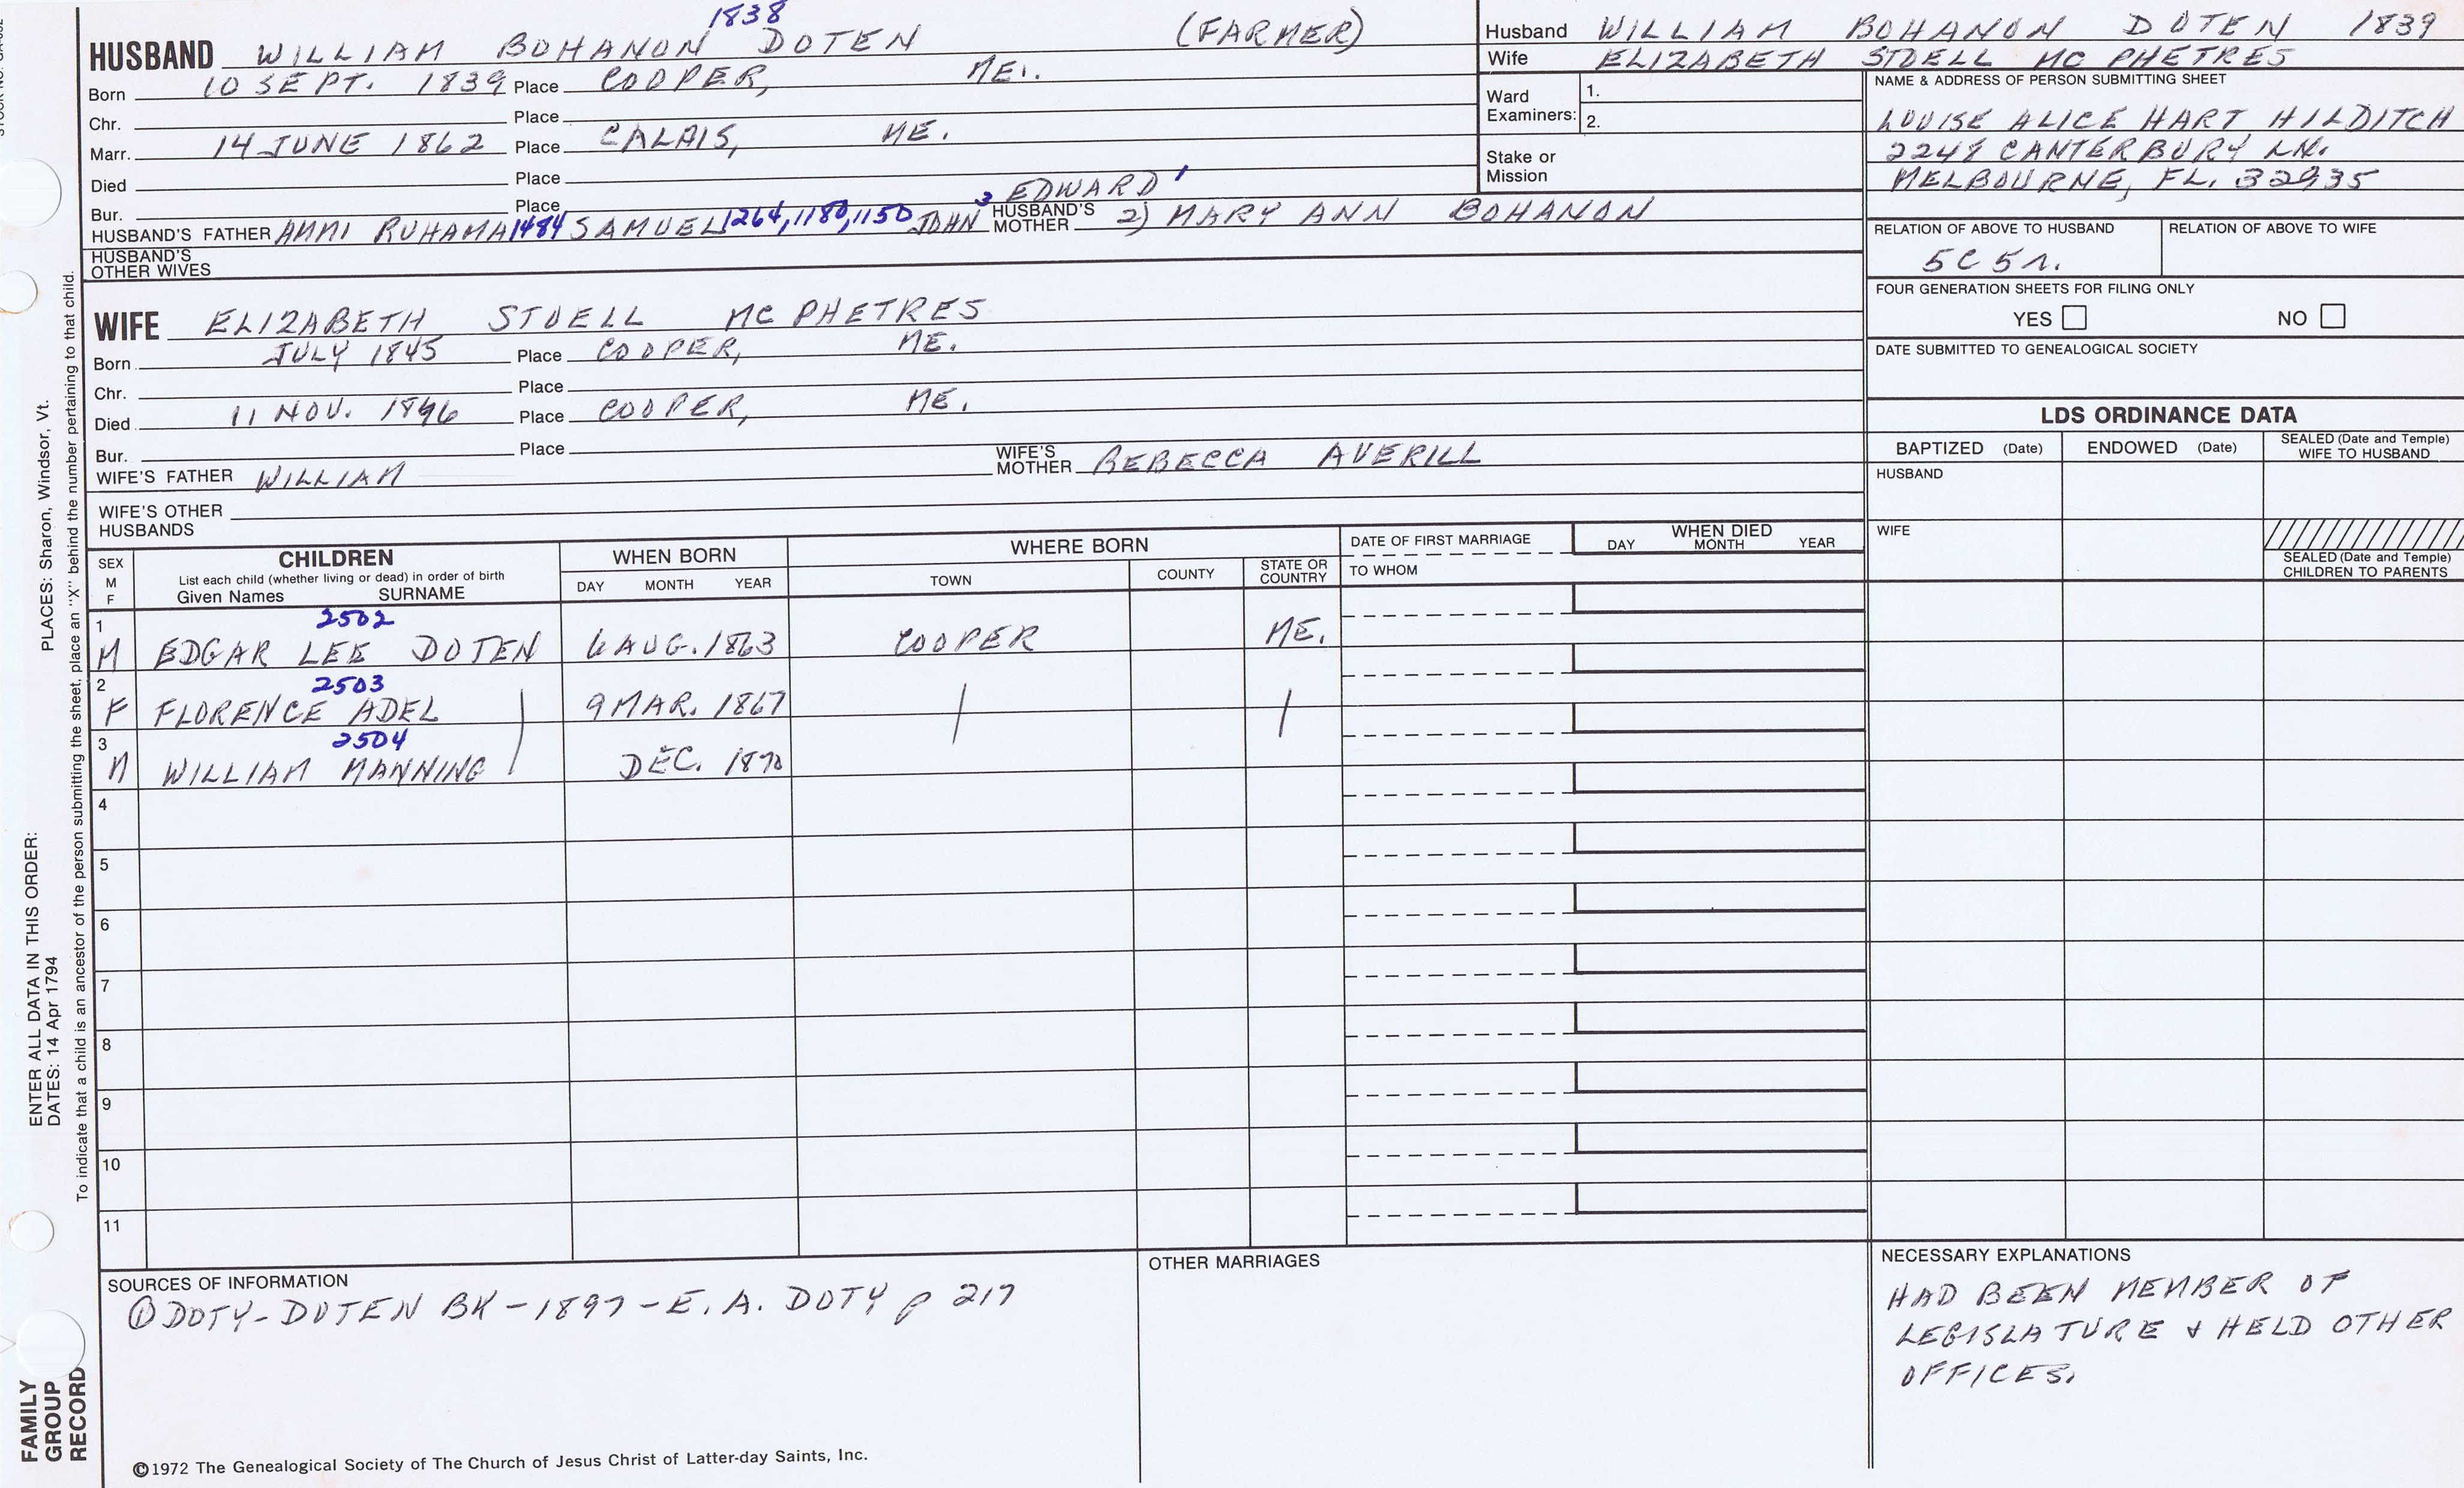 1838
HUSBAND WILLIAM BOHANON DOTEN (FARMER)
Born 10 SEPT. 1839 Place COOPER, ME.
Chr. Place
Marr. 14 JUNE 1862 Place CALAIS, ME.
Died Place
Bur. Place
HUSBAND'S FATHER AMMI RUHAMA 1484 SAMUEL 1264, 1180, 1150 JOHN 3 EDWARD 1 HUSBAND'S MOTHER 2) MARY ANN BOHANON
HUSBAND'S OTHER WIVES
WIFE ELIZABETH STOELL MC PHETRES
Born JULY 1845 Place COOPER, ME.
Chr. Place
Died 11 NOV. 1896 Place COOPER, ME.
Bur. Place
WIFE'S FATHER WILLIAM WIFE'S MOTHER REBECCA AVERILL
WIFE'S OTHER HUSBANDS
Husband WILLIAM BOHANON DOTEN 1839
Wife ELIZABETH STOELL MC PHETRES
Ward Examiners: 1.
2.
Stake or Mission
NAME & ADDRESS OF PERSON SUBMITTING SHEET
LOUISE ALICE HART HILDITCH
2248 CANTERBURY LN.
MELBOURNE, FL. 32935
RELATION OF ABOVE TO HUSBAND RELATION OF ABOVE TO WIFE
5C 5r.
FOUR GENERATION SHEETS FOR FILING ONLY
YES NO
DATE SUBMITTED TO GENEALOGICAL SOCIETY
LDS ORDINANCE DATA
BAPTIZED (Date) ENDOWED (Date) SEALED (Date and Temple) WIFE TO HUSBAND
HUSBAND
WIFE
SEALED (Date and Temple) CHILDREN TO PARENTS
SEX M F CHILDREN WHEN BORN WHERE BORN DATE OF FIRST MARRIAGE WHEN DIED
List each child (whether living or dead) in order of birth
Given Names SURNAME DAY MONTH YEAR TOWN COUNTY STATE OR COUNTRY TO WHOM DAY MONTH YEAR
2502
1 M EDGAR LEE DOTEN 6 AUG. 1863 COOPER ME.
2503
2 F FLORENCE ADEL 9 MAR. 1867
2504
3 M WILLIAM MANNING DEC. 1870
4
5
6
7
8
9
10
11
SOURCES OF INFORMATION
① DOTY-DOTEN BK - 1897 - E. A. DOTY p 217
OTHER MARRIAGES
NECESSARY EXPLANATIONS
HAD BEEN MEMBER OF
LEGISLATURE & HELD OTHER
OFFICES.
©1972 The Genealogical Society of The Church of Jesus Christ of Latter-day Saints, Inc.
FAMILY GROUP RECORD
ENTER ALL DATA IN THIS ORDER:
DATES: 14 Apr 1794
PLACES: Sharon, Windsor, Vt.
To indicate that a child is an ancestor of the person submitting the sheet, place an "X" behind the number pertaining to that child.